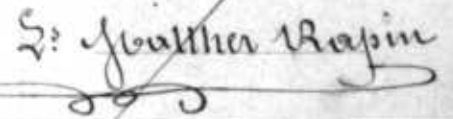 L: Walther Rapin